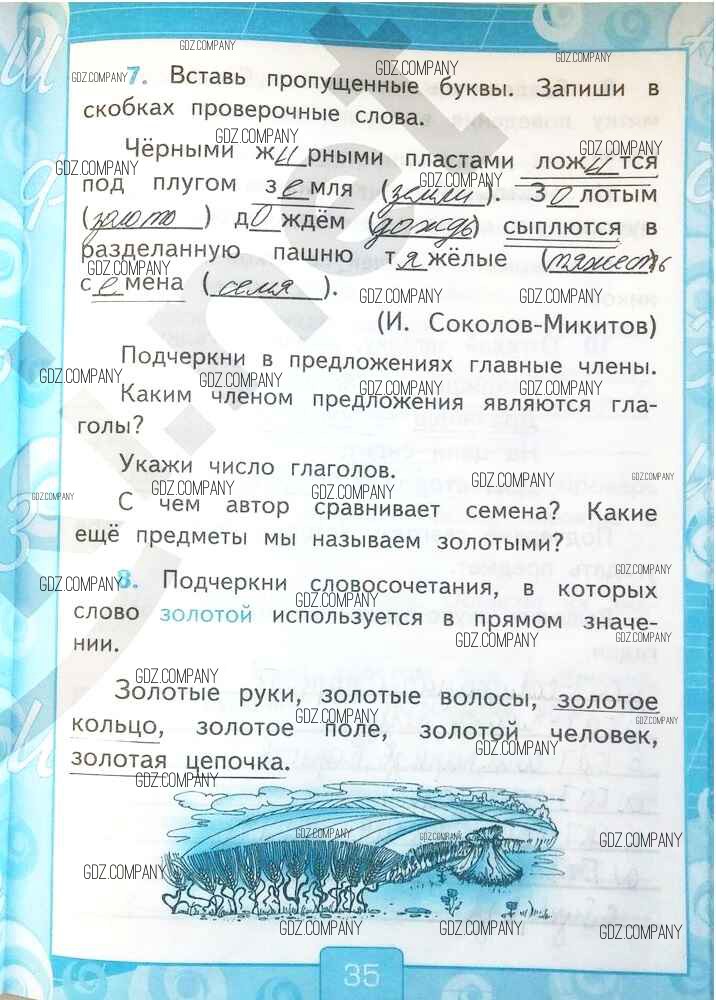 7. Вставь пропущенные буквы. Запиши в
скобках проверочные слова.
Чёрными жирными пластами ложится
под плугом земля (земли). Золотым
(золото) дождём (дождь) сыплются в
разделанную пашню тяжёлые (тяжесть)
семена (семя).
(И. Соколов-Микитов)
Подчеркни в предложениях главные члены.
Каким членом предложения являются гла-
голы?
Укажи число глаголов.
С чем автор сравнивает семена? Какие
ещё предметы мы называем золотыми?
8. Подчеркни словосочетания, в которых
слово золотой используется в прямом значе-
нии.
Золотые руки, золотые волосы, золотое
кольцо, золотое поле, золотой человек,
золотая цепочка.
35
GDZ.COMPANY